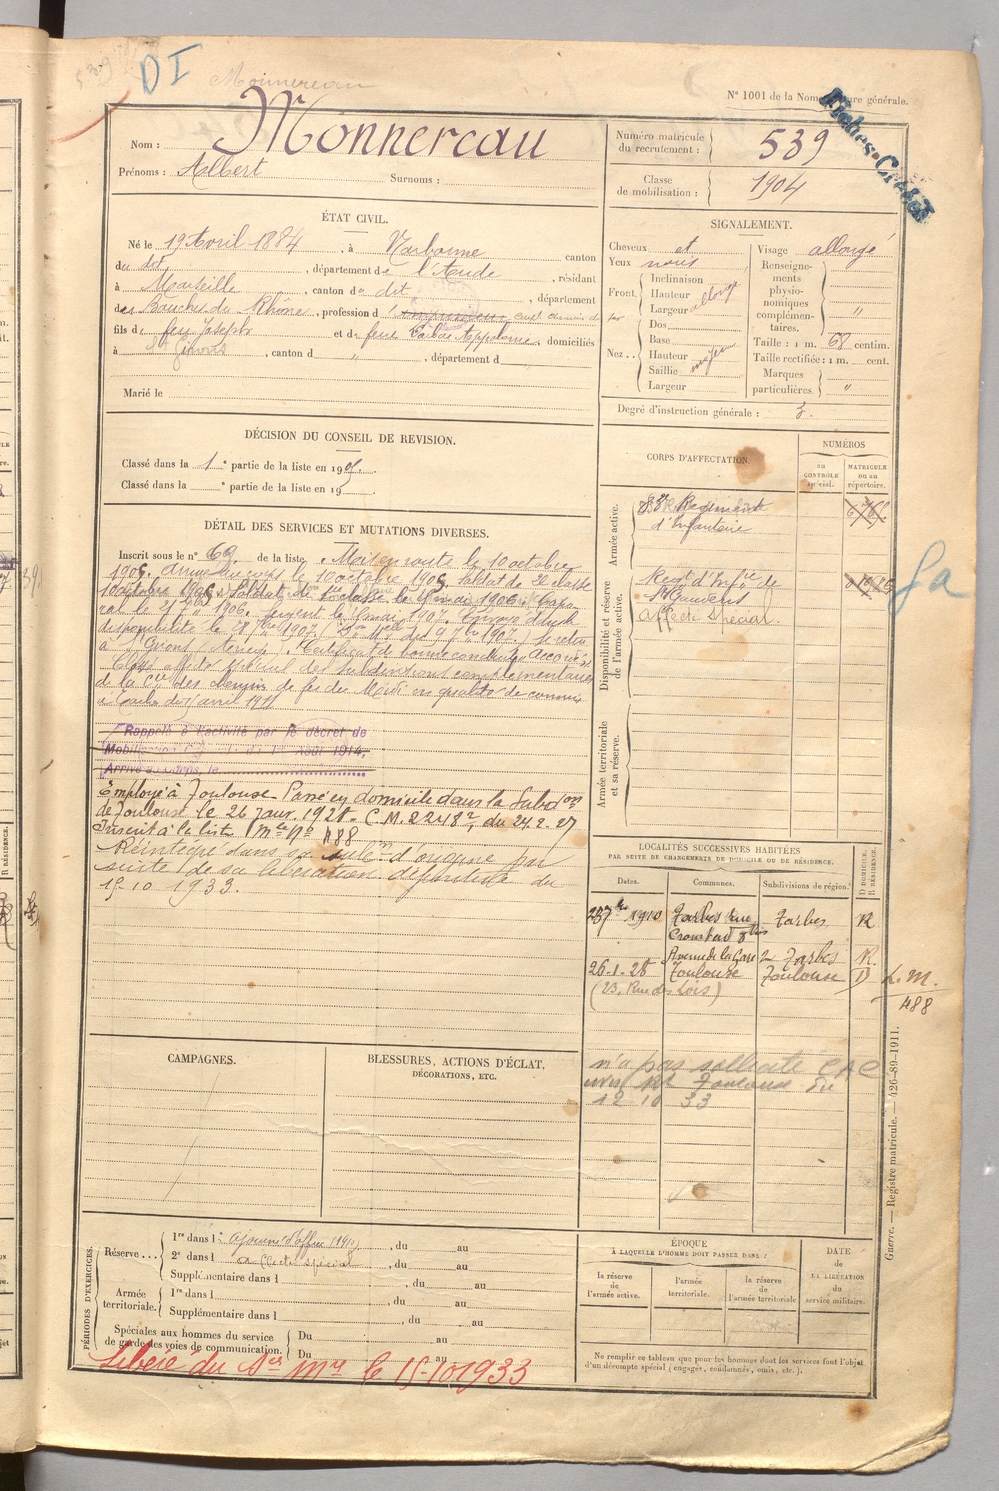 DI
Monnereau
N° 1001 de la Nomenclature générale.
Nom : Monnereau
Prénoms : Albert Surnoms :
Numéro matricule du recrutement : 539
Classe de mobilisation : 1904
ÉTAT CIVIL.
Né le 19 Avril 1884, à Narbonne canton
du dit, département de l'Aude, résidant
à Marseille, canton du dit, département
des Bouches du Rhône, profession d
fils de feu Joseph et de feue domiciliés
à St Girons, canton d " , département d
Marié le
SIGNALEMENT.
Cheveux et
Yeux noirs
Front
Inclinaison
Hauteur
Largeur
Nez
Dos
Base
Hauteur moyen
Saillie
Largeur
Visage allongé
Renseignements physionomiques complémentaires. "
Taille : 1 m. 68 centim.
Taille rectifiée : 1 m. cent.
Marques particulières "
Degré d'instruction générale : 3.
DÉCISION DU CONSEIL DE REVISION.
Classé dans la 1e partie de la liste en 1905.
Classé dans la e partie de la liste en 19
CORPS D'AFFECTATION.
NUMÉROS
au CONTRÔLE spécial.
MATRICULE ou au répertoire.
Armée active.
83e Régiment
d'Infanterie
Disponibilité et réserve de l'armée active.
Regt d'Infie de
St Gaudens
Affecté Spécial.
Armée territoriale et sa réserve.
DÉTAIL DES SERVICES ET MUTATIONS DIVERSES.
Inscrit sous le n° 69 de la liste. Mis en route le 10 octobre
1905. Arrivé au corps le 10 octobre 1905. Soldat de 2e classe
10 octobre 1905. Soldat de 1re classe le mai 1906. Capo-
ral le 1906. Sergent le 1907. Envoyé dans la
disponibilité le 1907. Se retire
à St Girons (Ariège). Certificat de bonne conduite Accordé.
Classé affecté spécial des subdivisions complémentaires
de la Cie des chemins de fer du Midi en qualité de commis
à Tarbes du 1 avril 1911
Rappelé à l'activité par le décret de
Mobilisation Générale du 1er Août 1914,
Arrivé au corps, le
Employé à Toulouse Passé en domicile dans la Subdon
de Toulouse le 26 janv. 1928. C.M. 22482, du 24.2.27
Inscrit à la liste Mle No 488
Réintégré dans sa subon d'origine par
suite de sa libération définitive du
15-10 1933.
LOCALITÉS SUCCESSIVES HABITÉES
PAR SUITE DE CHANGEMENTS DE DOMICILE OU DE RÉSIDENCE.
Dates. Communes. Subdivisions de région. D DOMICILE. R RÉSIDENCE.
1910 Tarbes rue Tarbes R
Cronstad 8 bis
Avenue de la Gare 2 Tarbes R.
26-1-28 Toulouse Toulouse D
(23, Rue des Lois)
L.M.
488
n'a pas sollicité CAC
avis Rt Toulouse du
12 10 33
CAMPAGNES.
BLESSURES, ACTIONS D'ÉCLAT,
DÉCORATIONS, ETC.
Guerre. — Registre matricule. — 426-89-1911.
PÉRIODES D'EXERCICES.
Réserve... 1re dans l ajourné d'office (1910), du au
2e dans l affecté spécial, du au
Supplémentaire dans l , du au
Armée territoriale. 1re dans l , du au
Supplémentaire dans l , du au
Spéciales aux hommes du service
de garde des voies de communication. Du au
Du au
ÉPOQUE
À LAQUELLE L'HOMME DOIT PASSER DANS :
la réserve de l'armée active.
l'armée territoriale.
la réserve de l'armée territoriale
DATE de LA LIBÉRATION du service militaire.
Ne remplir ce tableau que pour les hommes dont les services font l'objet
d'un décompte spécial (engagés, condamnés, omis, etc.).
Libéré du Ser Mre le 15-10 1933